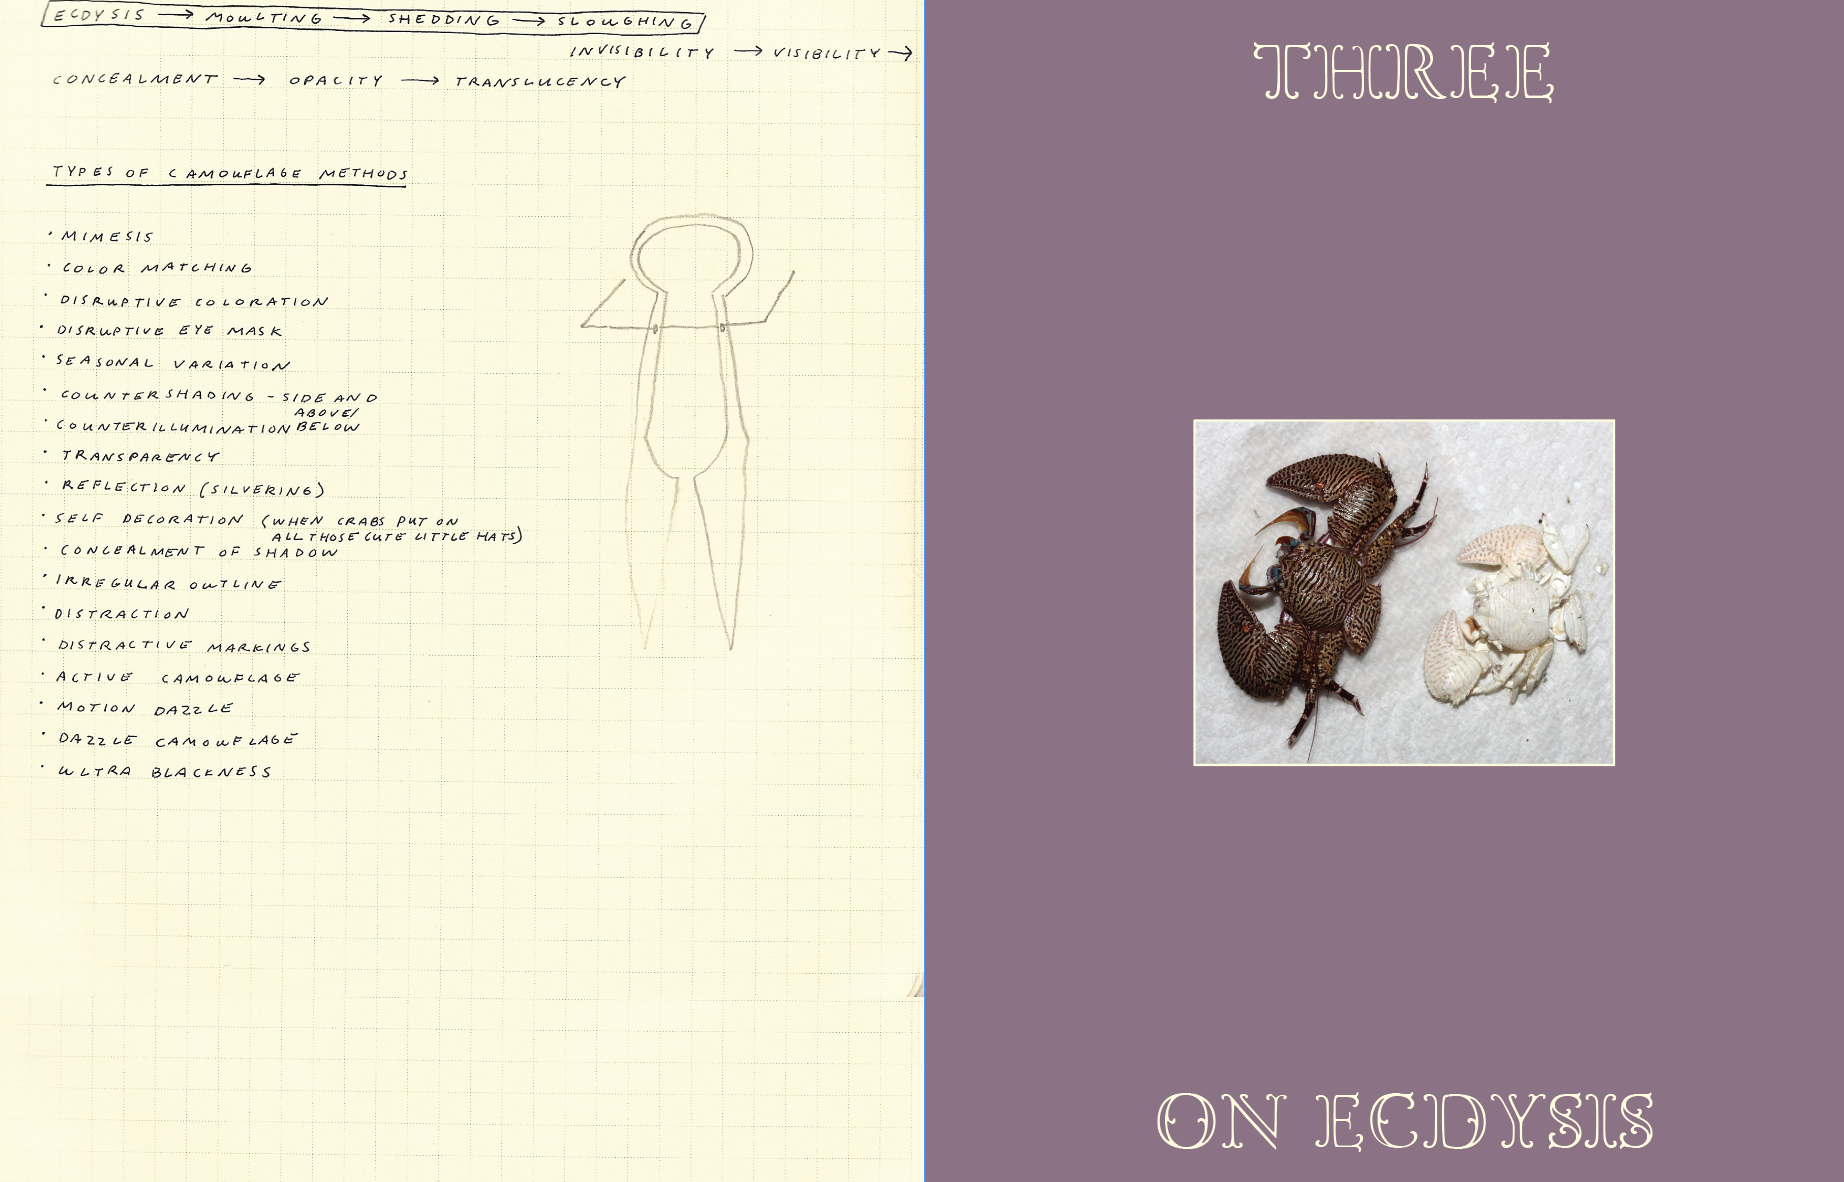 ECDYSIS → MOULTING → SHEDDING → SLOUGHING
INVISIBILITY → VISIBILITY →
CONCEALMENT → OPACITY → TRANSLUCENCY
TYPES OF CAMOUFLAGE METHODS
· MIMESIS
· COLOR MATCHING
· DISRUPTIVE COLORATION
· DISRUPTIVE EYE MASK
· SEASONAL VARIATION
· COUNTERSHADING - SIDE AND
ABOVE/
BELOW
· COUNTERILLUMINATION
· TRANSPARENCY
· REFLECTION (SILVERING)
· SELF DECORATION (WHEN CRABS PUT ON
ALL THOSE CUTE LITTLE HATS)
· CONCEALMENT OF SHADOW
· IRREGULAR OUTLINE
· DISTRACTION
· DISTRACTIVE MARKINGS
· ACTIVE CAMOUFLAGE
· MOTION DAZZLE
· DAZZLE CAMOUFLAGE
· ULTRA BLACKNESS
THREE
ON ECDYSIS